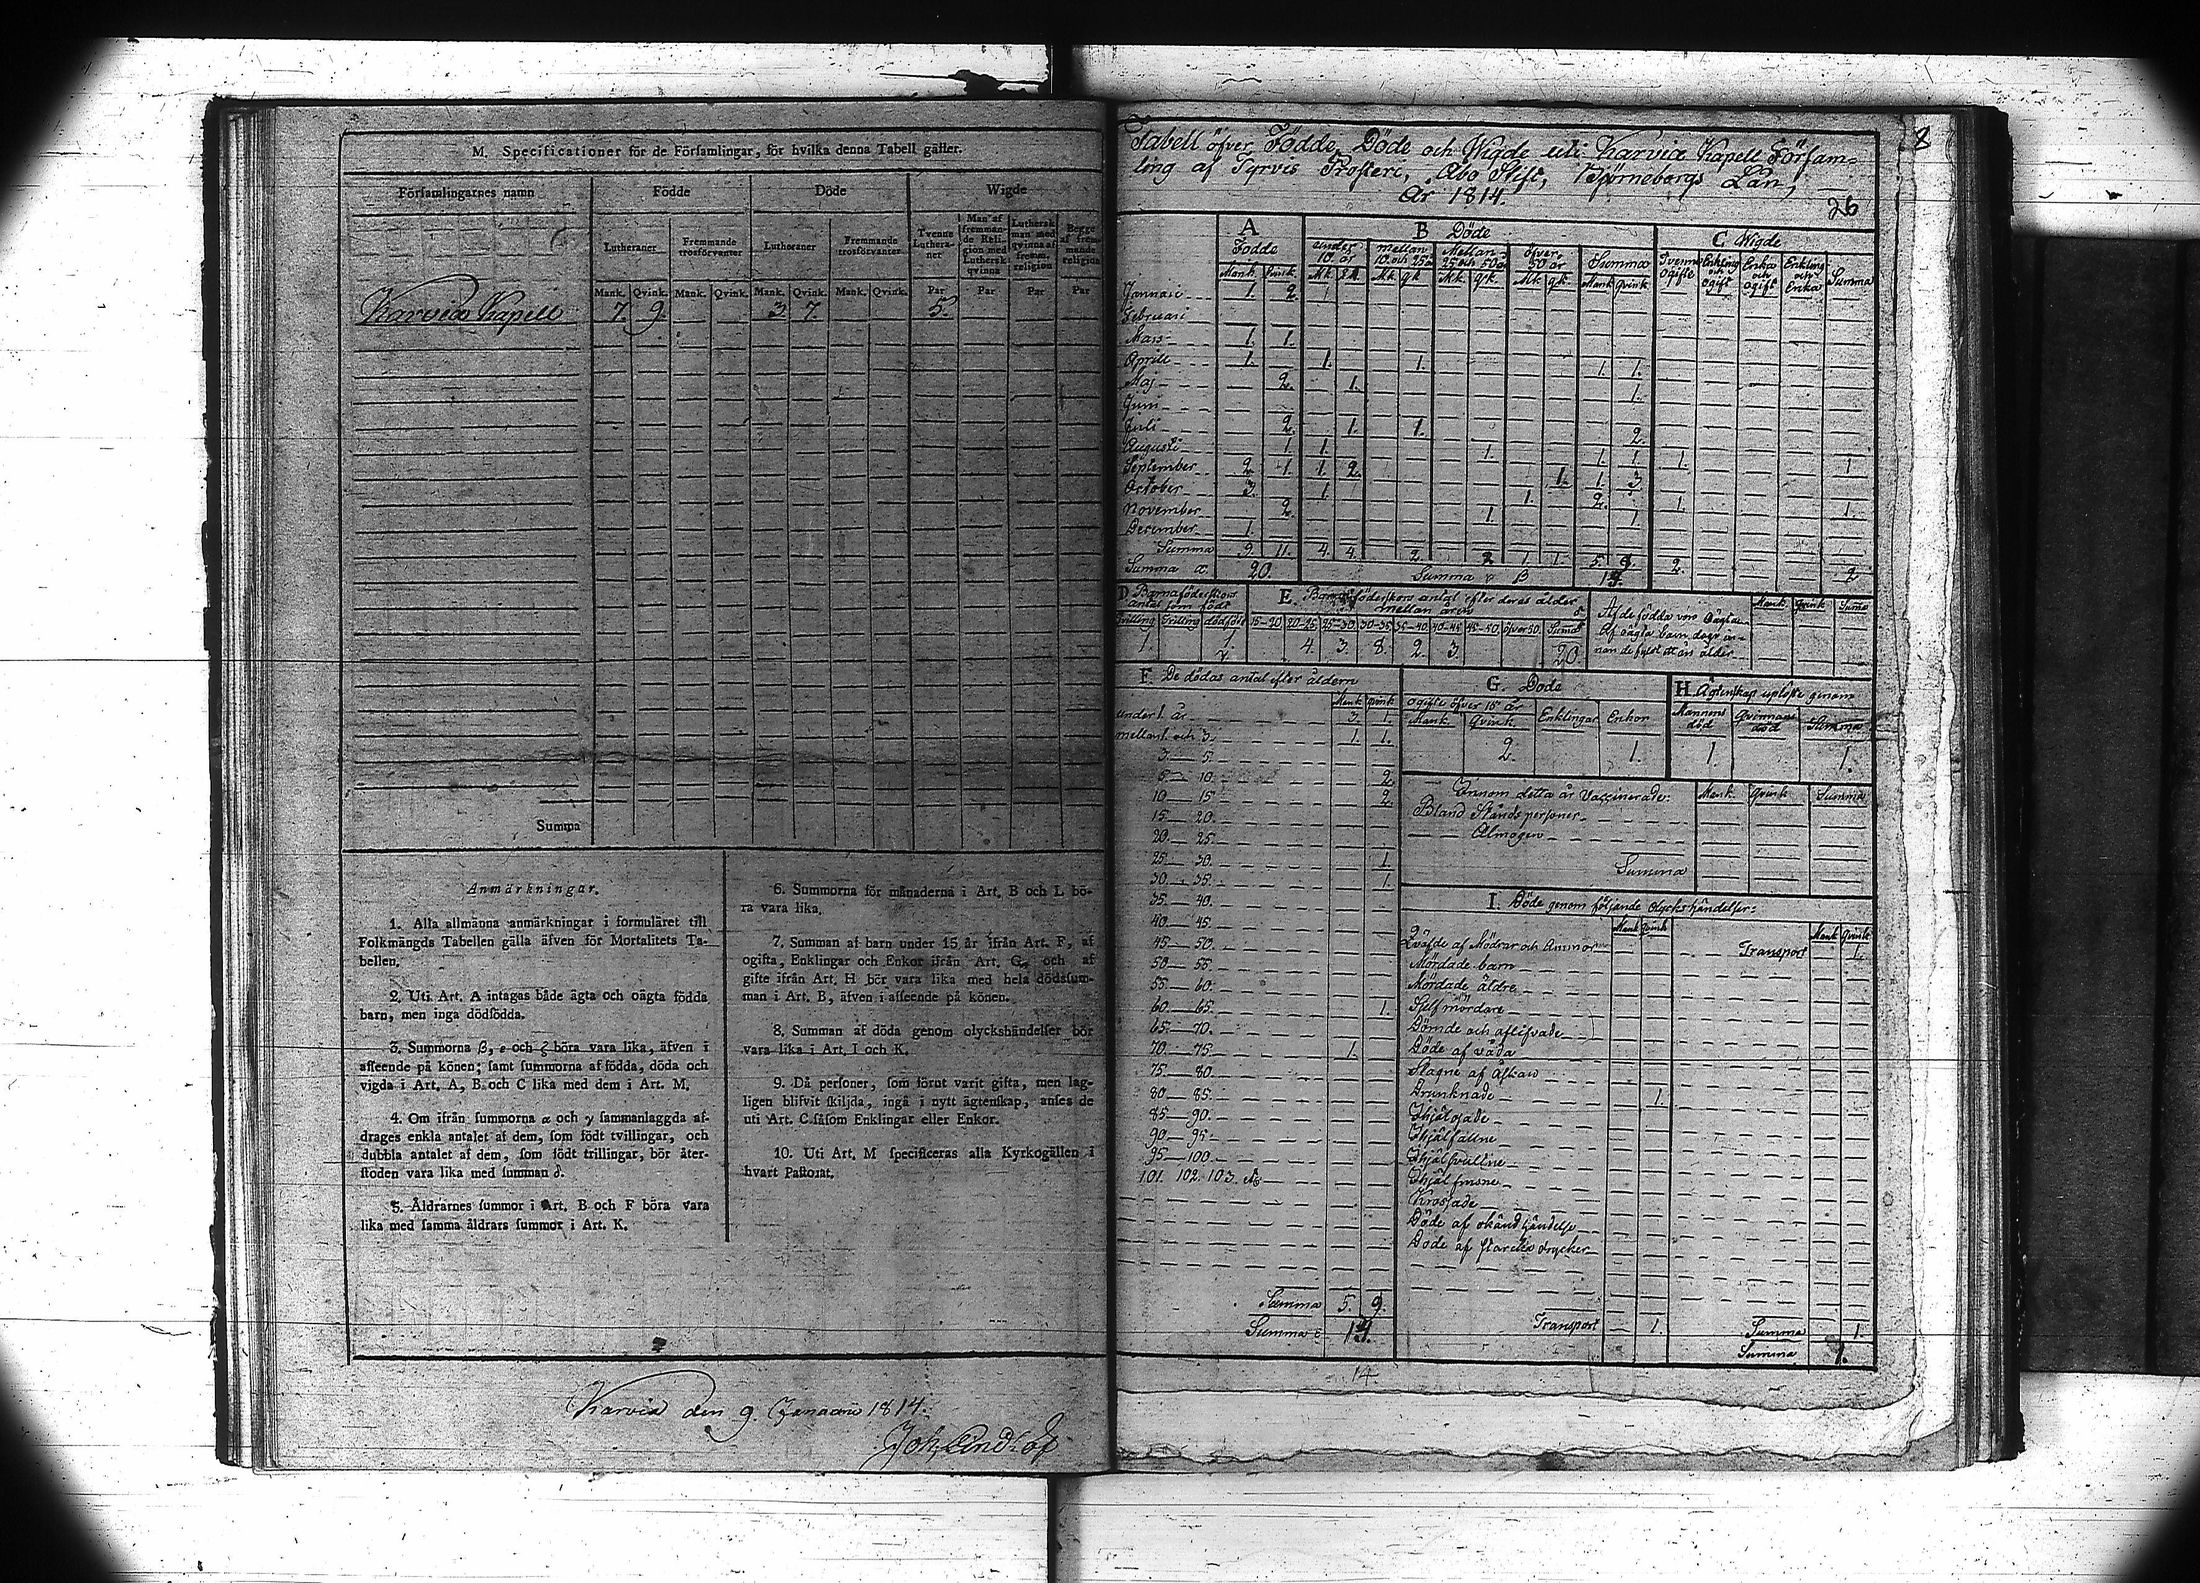 M. Specificationer för de Församlingar, för hvilka denna Tabell gäller.
Församlingarnes namn Födde Döde Wigde
Lutheraner Fremmande trosförvanter Lutheraner Fremmande trosförvanter Tvenne Lutheraner Man af fremmande Religion med Luthersk qvinna Luthersk man med qvinna af fremm. religion Begge af fremmande religion
Mank. Qvink. Mank. Qvink. Mank. Qvink. Mank. Qvink. Par Par Par Par
Karvia Kapell 7. 9. 3. 7. 5.
Summa
Anmärkningar.
1. Alla allmänna anmärkningar i formuläret till
Folkmängds Tabellen gälla äfven för Mortalitets Ta-
bellen.
2. Uti Art. A intagas både ägta och oägta födda
barn, men inga dödfödda.
3. Summorna β, ε och ζ böra vara lika, äfven i
afseende på könen; samt summorna af födda, döda och
vigda i Art. A, B och C lika med dem i Art. M.
4. Om ifrån summorna α och γ sammanlaggda af-
drages enkla antalet af dem, som födt tvillingar, och
dubbla antalet af dem, som födt trillingar, bör åter-
stoden vara lika med summan δ.
5. Åldrarnes summor i Art. B och F böra vara
lika med samma åldrars summor i Art. K.
6. Summorna för månaderna i Art. B och L bö-
ra vara lika.
7. Summan af barn under 15 år ifrån Art. F, af
ogifta, Enklingar och Enkor ifrån Art. G, och af
gifte ifrån Art. H bör vara lika med hela dödssum-
man i Art. B, äfven i afseende på könen.
8. Summan af döda genom olyckshändelser bör
vara lika i Art. I och K.
9. Då personer, som förut varit gifta, men lag-
ligen blifvit skiljda, ingå i nytt ägtenskap, anses de
uti Art. C såsom Enklingar eller Enkor.
10. Uti Art. M specificeras alla Kyrkogällen i
hvart Pastorat.
Karvia den 9. Januarii 1814.
Joh. Lindlöf
8
Tabell öfver Födde, Döde och Wigde uti Karvia Kapell Församling
af Tyrvis Prosteri, Åbo Stift, Björneborgs Län,
År 1814.
26
A B Döde C Wigde
Födde under 10 år mellan 10 och 25 år Mellan 25 och 50 år öfver 50 år Summa Tvenne ogifte Enkling och ogift Enka och ogift Enkling och Enka Summa
Mank Qvink Mk Qk Mk qk Mk qk Mk qk Mank Qvink
Januari 1. 2.
Februari
Mars 1. 1.
Aprill 1. 1. 1. 1. 1.
Maj 2. 1. 1.
Juni
Juli 2. 1. 1. 2.
Augusti 1. 1. 1. 1. 1. 1. 1
September 2. 1. 1. 2. 1. 1. 3
October 3. 1. 1. 2. 1. 1.
November 2. 1. 1
December 1.
Summa 9. 11. 4. 4. 2 2 1. 1. 5. 9. 2. 2
Summa α. 20. Summa β 14.
D Barnaföderskors antal som födt E. Barnaföderskors antal efter deras ålder mellan åren Af de födda voro Oägta Mank Qvink Summa
Tvilling Trilling dödföde 15-20 20-25 25-30 30-35 35-40 40-45 45-50 öfver 50 Summa
1. 1. 4. 3. 8. 2. 3. 20
F. De dödas antal efter åldern
Mank Qvink
under 1. år 3. 1.
mellan 1. och 3. 1. 1.
3 - 5
5 - 10 2.
10 - 15 2.
15 - 20
20 - 25
25 - 30 1.
30 - 35 1.
35 - 40
40 - 45
45 - 50
50 - 55
55 - 60
60 - 65 1.
65 - 70
70 - 75 1.
75 - 80
80 - 85
85 - 90
90 - 95
95 - 100
101. 102. 103.
Summa 5. 9.
Summa ε 14.
14.
G. Döde
ogifte öfver 15 år Enklingar Enkor
Mank Qvink
2. 1.
H. Ägtenskap uplöste genom
Mannens död Qvinnans död Summa
1 1.
Innom detta år Vaccinerade: Mank Qvink Summa
Bland Ståndspersoner
Almogen
Summa
I. Döde genom följande Olyckshändelser:
Mank Qvink Mank Qvink
Qväfde af Mödrar och Ammor Transport 1.
Mördade barn
Mördade äldre
Sjelfmördare
Dömde och aflifvade
Döde af våda
Slagne af Åskan
Drunknade 1.
Ihjälfallne
Ihjälfrusne
Krossade
Döde af okänd händelse
Döde af starcka drycker
Transport 1. Summa 1.
Summa 1.